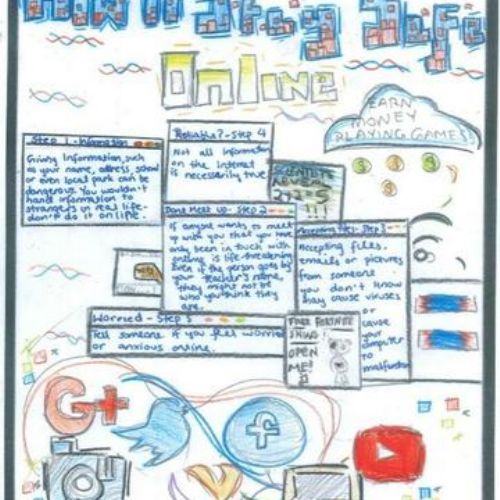 Stay Safe
Online
EARN
MONEY
PLAYING GAMES!
Step 1 - Information
Giving Information, such
as your name, address, school
or even local park can be
dangerous. You wouldn't
hand information to
strangers in real life-
don't do it online.
Reliable? - Step 4
Not all information
on the Internet
is necessarily true
Dont Meet up - Step 2
If anyone wants to meet
up with you that you have
only been in touch with
online is life-threatening
Even if the person goes by
your teacher's name,
they might not be
who you think they
are.
Accepting files - Step 3
Accepting files,
emails or pictures
from someone
you don't know
may cause viruses
or
cause
your
computer
to
malfunction
Worried - Step 5
Tell someone if you feel worried
or anxious online.
FREE FORTNITE
SKINS!
OPEN
ME!
G+
f